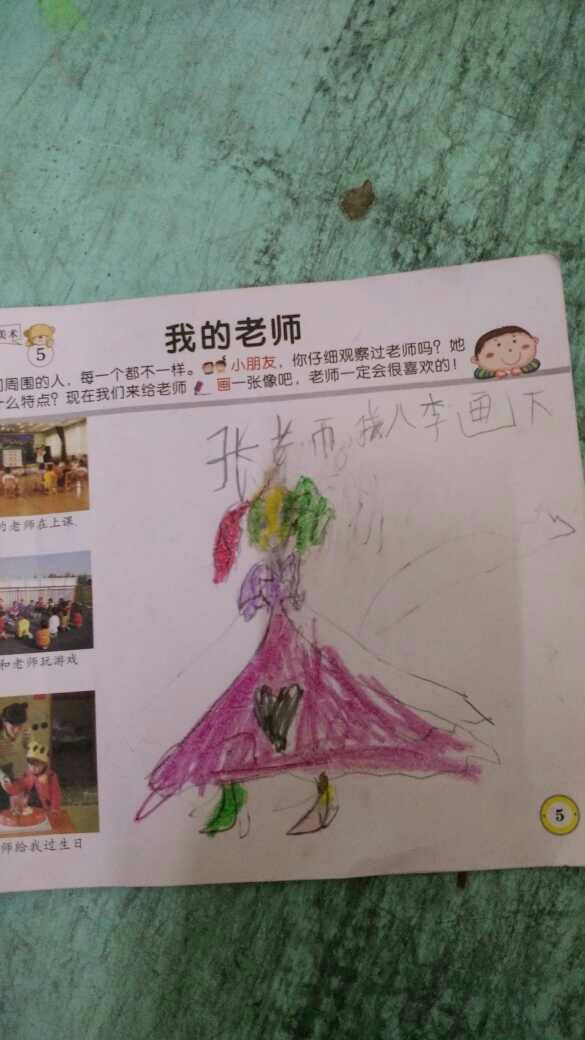 美术
5
我的老师
周围的人，每一个都不一样。小朋友，你仔细观察过老师吗？她
什么特点？现在我们来给老师画一张像吧，老师一定会很喜欢的！
张老师
的老师在上课
和老师玩游戏
师给我过生日
5